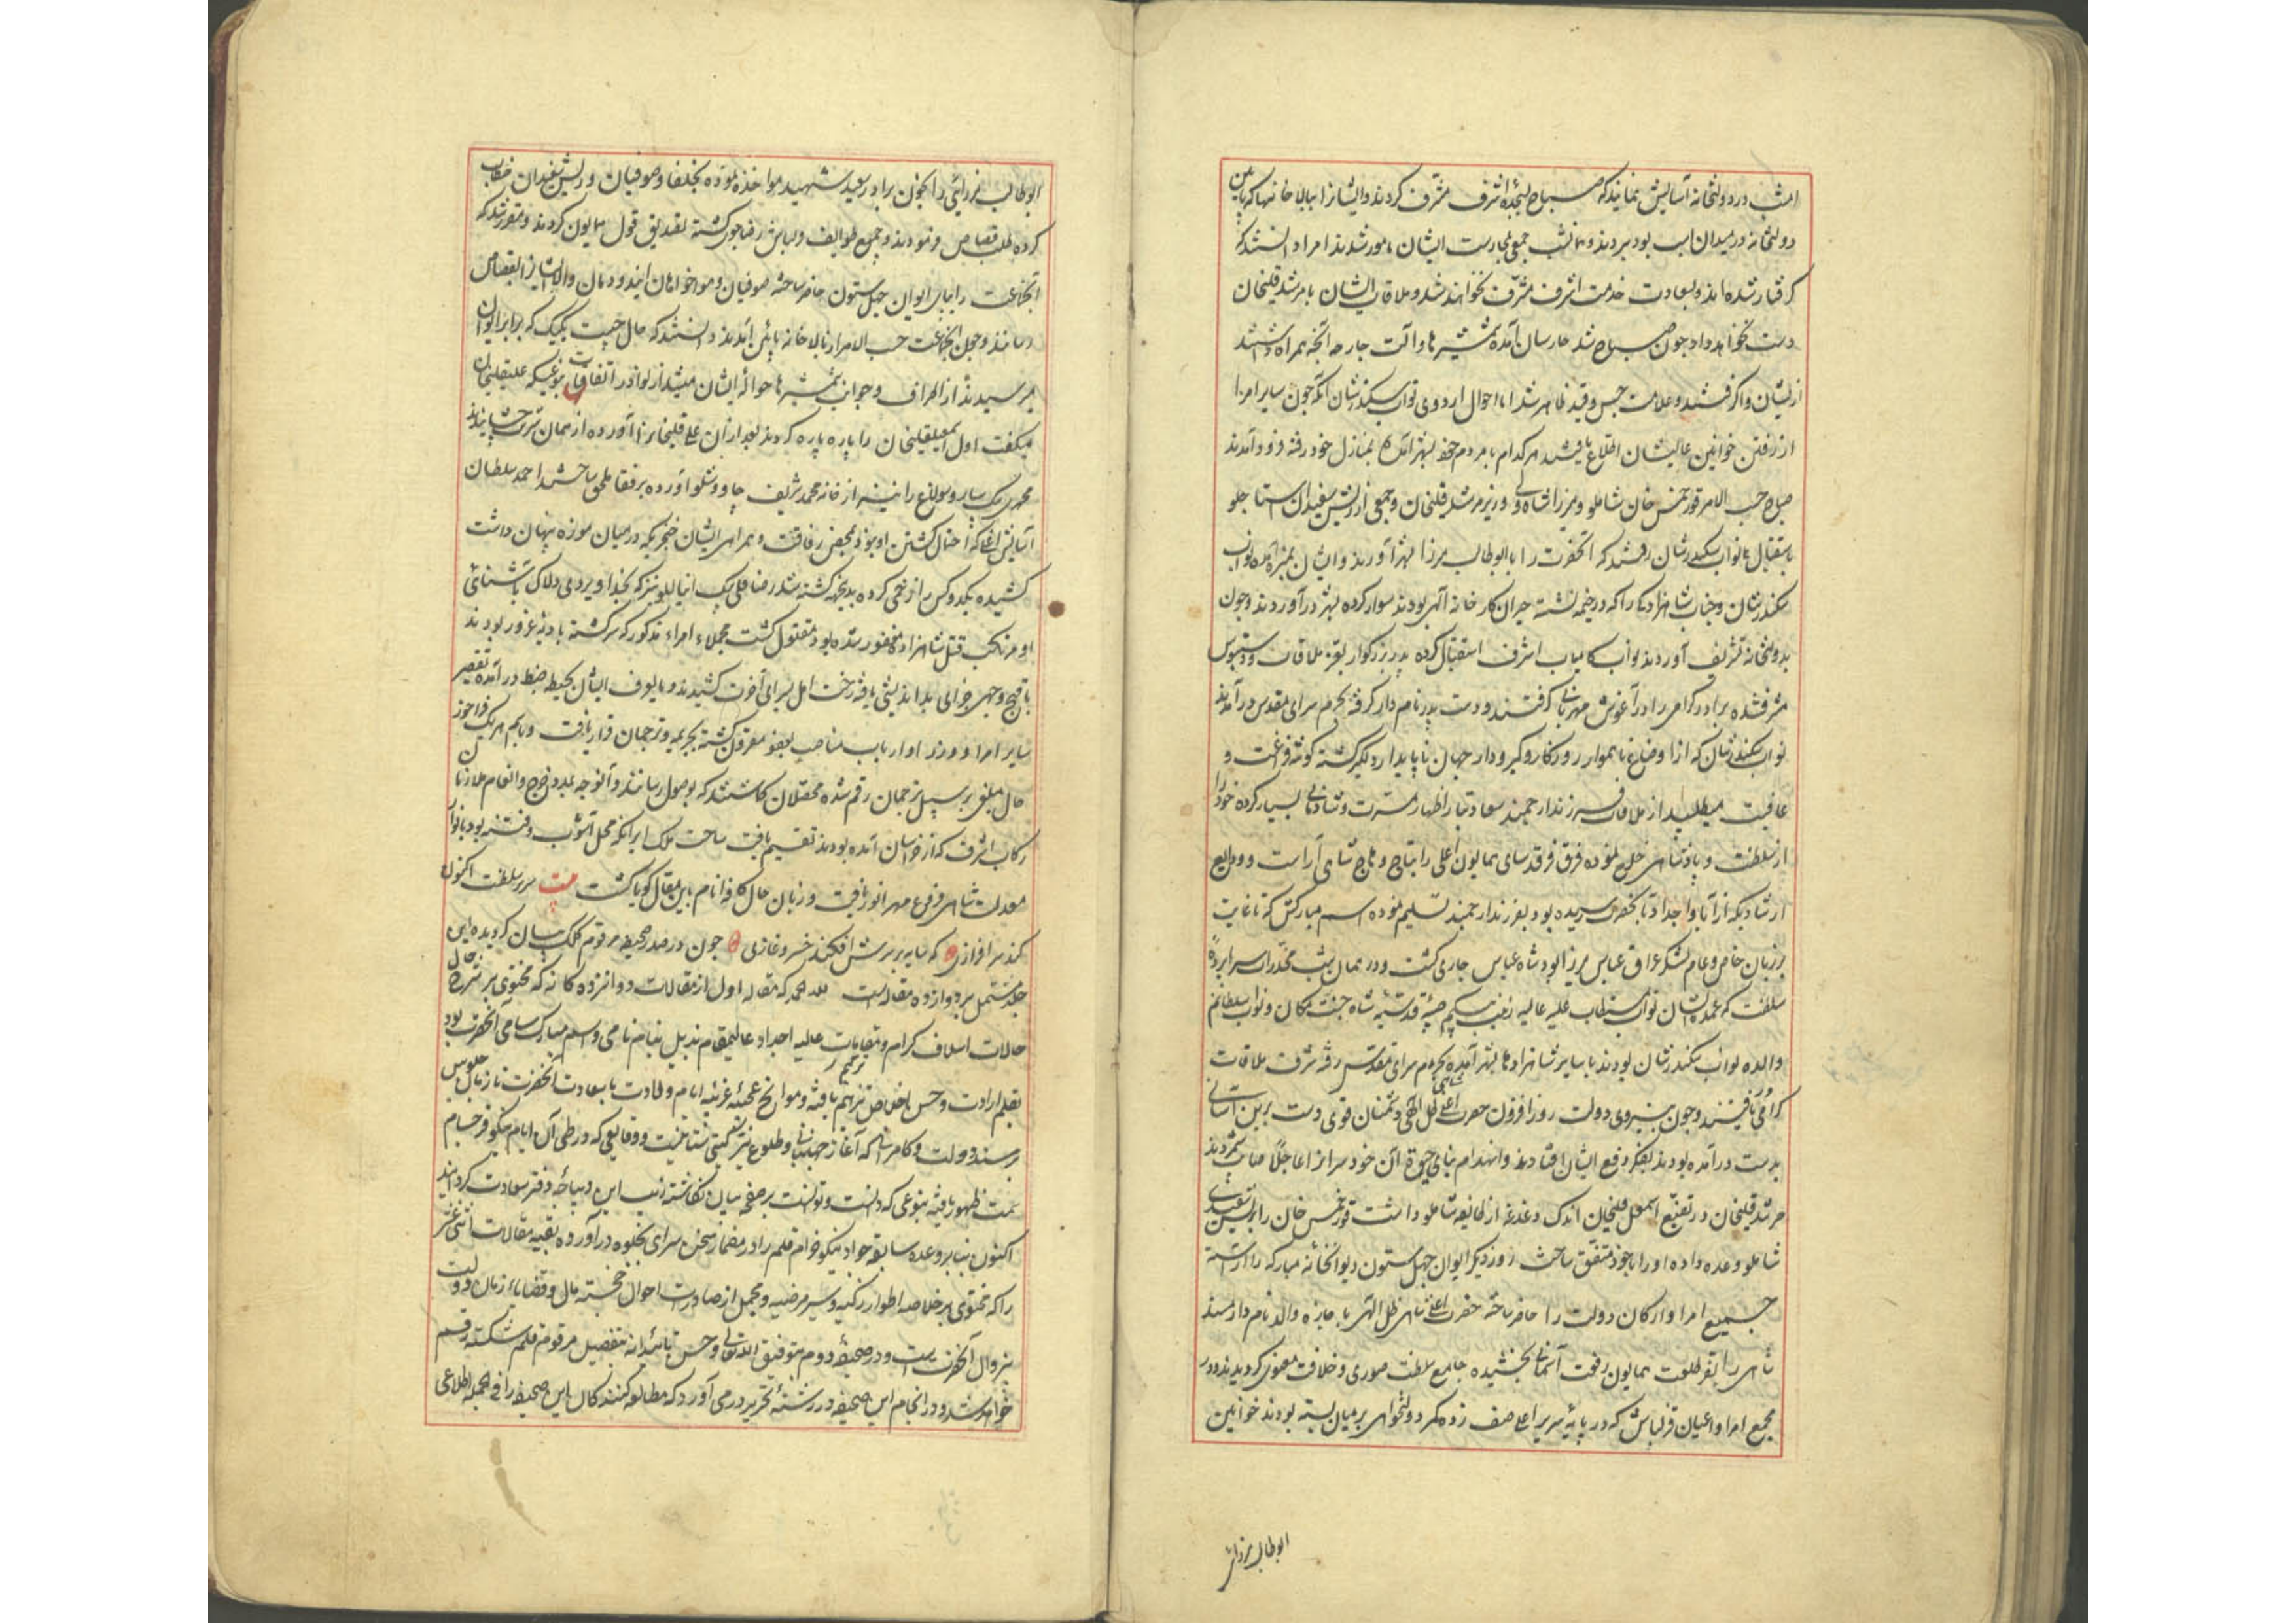 امشب در دولتخانه آسایش نمایند که صباح بسجده اشرف مشرف کردند و ایشانرا ببالا خانها که مابین
دولتخانه و میدان اسب بود بردند و همانشب جمعی بحارست ایشان مامور شدند امرا دانستند که
کرفتار شده اند و بسعادت خدمت اشرف مشرف نخواهند شد و ملاقات ایشان با مرشد قلیخان
دست نخواهد داد چون صباح شد حارسان آمده شمشیرها و آلت جارحه آنچه همراه داشتند
از ایشان واکرفتند و علامت حبس و قید ظاهر شد اما احوال اردوی نواب سکندرشان آنکه چون سایر امرا
از رفتن خوانین عالیشان اطلاع یافتند هر کدام با مردم خود بشهر آمده بمنازل خود رفته فرود آمدند
صباح حسب الامر قورخمس خان شاملو و میرزا شاه ولی وزیر مرشد قلیخان و جمعی از ریش سفیدان استاجلو
باستقبال نواب سکندرشان رفتند که آنحضرت را با ابوطالب میرزا بشهر آورند و ایشان بمنزل آمده نواب
سکندرشان و جناب شاهزاده را که در خیمه نشسته حیران کارخانه الهی بودند سوار کرده بشهر درآوردند و چون
بدولتخانه تشریف آوردند نواب کامیاب اشرف استقبال کرده پدر بزرکوار بعز ملاقات و دستبوس
مشرف شده برادر کرامی را در آغوش مهربانی کرفتند و دست پدر نامدار کرفته بحرم سرای مقدس درآمدند
نواب سکندرشان که از اوضاع ناهموار روزکار و کیر و دار جهان ناپایدار دلکیر کشته کوشه فراغت و
عافیت میطلبید از ملاقات فرزند ارجمند سعادتیار اظهار مسرت و شادمانی بسیار کرده خود را
از سلطنت و پادشاهی خلع نموده فرق فرقدسای همایون اعلی را بتاج وهاج شاهی آراست و ودایع
ارشاد که از آبا و اجداد بآنحضرت رسیده بود بفرزند ارجمند تسلیم نموده اسم مبارکش که تا غایت
بر زبان خاص و عام لشکر عراق عباس میرزا بود شاه عباس جاری کشت و در همان شب مخدرات سراپرده
سلطنت که عمده ایشان نواب مستطاب علیه عالیه زینب بیکم صبیه قدسیه شاه جنت مکان و نواب سلطانم
والده نواب سکندرشان بودند با سایر شاهزادها بشهر آمده بحرم سرای مقدس رفته شرف ملاقات
کرامی یافتند و چون بنیروی دولت روزافزون حضرت اعلی شاهی ظل الهی دشمنان قوی دست بدین آسانی
بدست درآمده بودند بفکر دفع ایشان افتادند و انهدام بنای حیوة آن خودسران را عاجلا صلاح شمردند
مرشد قلیخان در تضییع اسمعیل قلیخان اندک دغدغه از طایفه شاملو داشت قورخمس خان را بریش سفیدی
شاملو وعده داده او را با خود متفق ساخت روز دیکر ایوان چهل ستون دیوانخانه مبارکه را آراسته
جمیع امرا و ارکان دولت را حاضر ساخته حضرت اعلی شاهی ظل الهی باجازه والد نامدار مسند
شاهی را بفر طلعت همایون رفعت آسمانی بخشیده جامع سلطنت صوری و خلافت معنوی کردیدند و در
مجمع امرا و اعیان قزلباش که در پایه سریر اعلی صف زده کمر دولتخواهی بر میان بسته بودند خوانین
ابوطالب میرزائی
ابوطالب میرزائی را بخون برادر سعید شهید مواخذه نموده بخلفا و صوفیان و ریش سفیدان خطاب
کرده طلب قصاص فرمودند و جمیع طوایف و لباس رضاجوی کشته تصدیق قول همایون کردند و مقرر شد که
آنجماعت را بپای ایوان چهل ستون حاضر ساخته صوفیان و هواخواهان ایندودمان والاشان ایشانرا بقصاص
رسانند و چون آنجماعت حسب الامر از بالاخانه پائین آمدند دانستند که حال چیست یکیک که برابر ایوان
میرسیدند از اطراف و جوانب شمشیرها حواله ایشان میشد از نوادر اتفاقات بنوعیکه علیقلیخان
میکفت اول اسمعیلقلیخان را پاره پاره کردند بعد از آن علیقلیخانرا آورده از همان شربت چشانیدند
محمدی بیک ساروسولاغ را نیز از خانه محمد شریف چاووشلو آورده برفقا ملحق ساختند احمد سلطان
آسایش اغلی که احتمال کشتن او نبود و بمحض رفاقت و همراهی ایشان خنجری که در میان موزه پنهان داشت
کشیده یکدو کس را زخمی کرده بدینجهه کشته شد رضا قلی بیک اینانلو نیز که بخداویردی دلاک آشنائی
او مرتکب قتل شاهزاده مغفور شده بود مقتول کشت مجملا امراء مذکور که سرکشته بادیه غرور بودند
باقبح وجهی جزای بداندیشی یافته رخت امل بسرای آخرت کشیدند و مایعرف ایشان بحیطه ضبط درآمده تقصیر
سایر امرا و وزرا و ارباب مناصب بعفو مقرون کشته بجریمه و ترجمان قرار یافت و باسم هر یک فراخور
حال مبلغی بر سبیل ترجمان رقم شده محصلان کماشتند که بوصول رسانند و آنوجه بمدد خرج و انعام ملازمان
رکاب اشرف که از خراسان آمده بودند تقسیم یافت ساحت ملک ایران که محل آشوب و فتنه بود بانوار
معدلت شاهی فروغ مهر انور یافت و زبان حال کافه انام باین مقال کویا کشت بیت سریر سلطنت اکنون
کند سرافرازی که سایه بر سرش افکند خسرو غازی چون در صدر صحیفه مرقوم کلک بیان کردیده این
جلد مشتمل بر دوازده مقاله است لله الحمد که مقاله اول از مقالات دوازده کانه که محتوی بر شرح حال
حالات اسلاف کرام و مقامات علیه اجداد عالیمقام مذیل بنام نامی و اسم مبارک سامی آنحضرت بود
بقلم ارادت و حسن اخلاص ترقیم یافته و سوانح عجیبه غریبه ایام ولادت با سعادت آنحضرت تا زمان جلوس
بر مسند دولت و کامرانی که آغاز جهانبانی و طلوع نیر کیتی ستانیست و وقایعی که در طی آن ایام نیکو فرجام
سمت ظهور یافته بنوعی که دانست و توانست بر صفحه بیان نکاشته زیب این دیباجه دفتر سعادت کردانید
اکنون بنابر وعده سابقه جواد نیکو خرام قلم را در مضمار سخن سرای بجلوه درآورده بقیه مقالات اثنی عشر
را که محتوی بر خلاصه اطوار زکیه و سیر مرضیه و مجمل از صادرات احوال خجسته مآل و قضایا از زمان دولت
بیزوال آنحضرت است و در صحیفه دوم بتوفیق الله تعالی و حسن تائیدانه بتفصیل مرقوم قلم شکسته رقم
خواهد شد و در انجام این صحیفه در رشته تحریر در می آورد که مطالعه کنندکان این صحیفه را فی الجمله اطلاعی